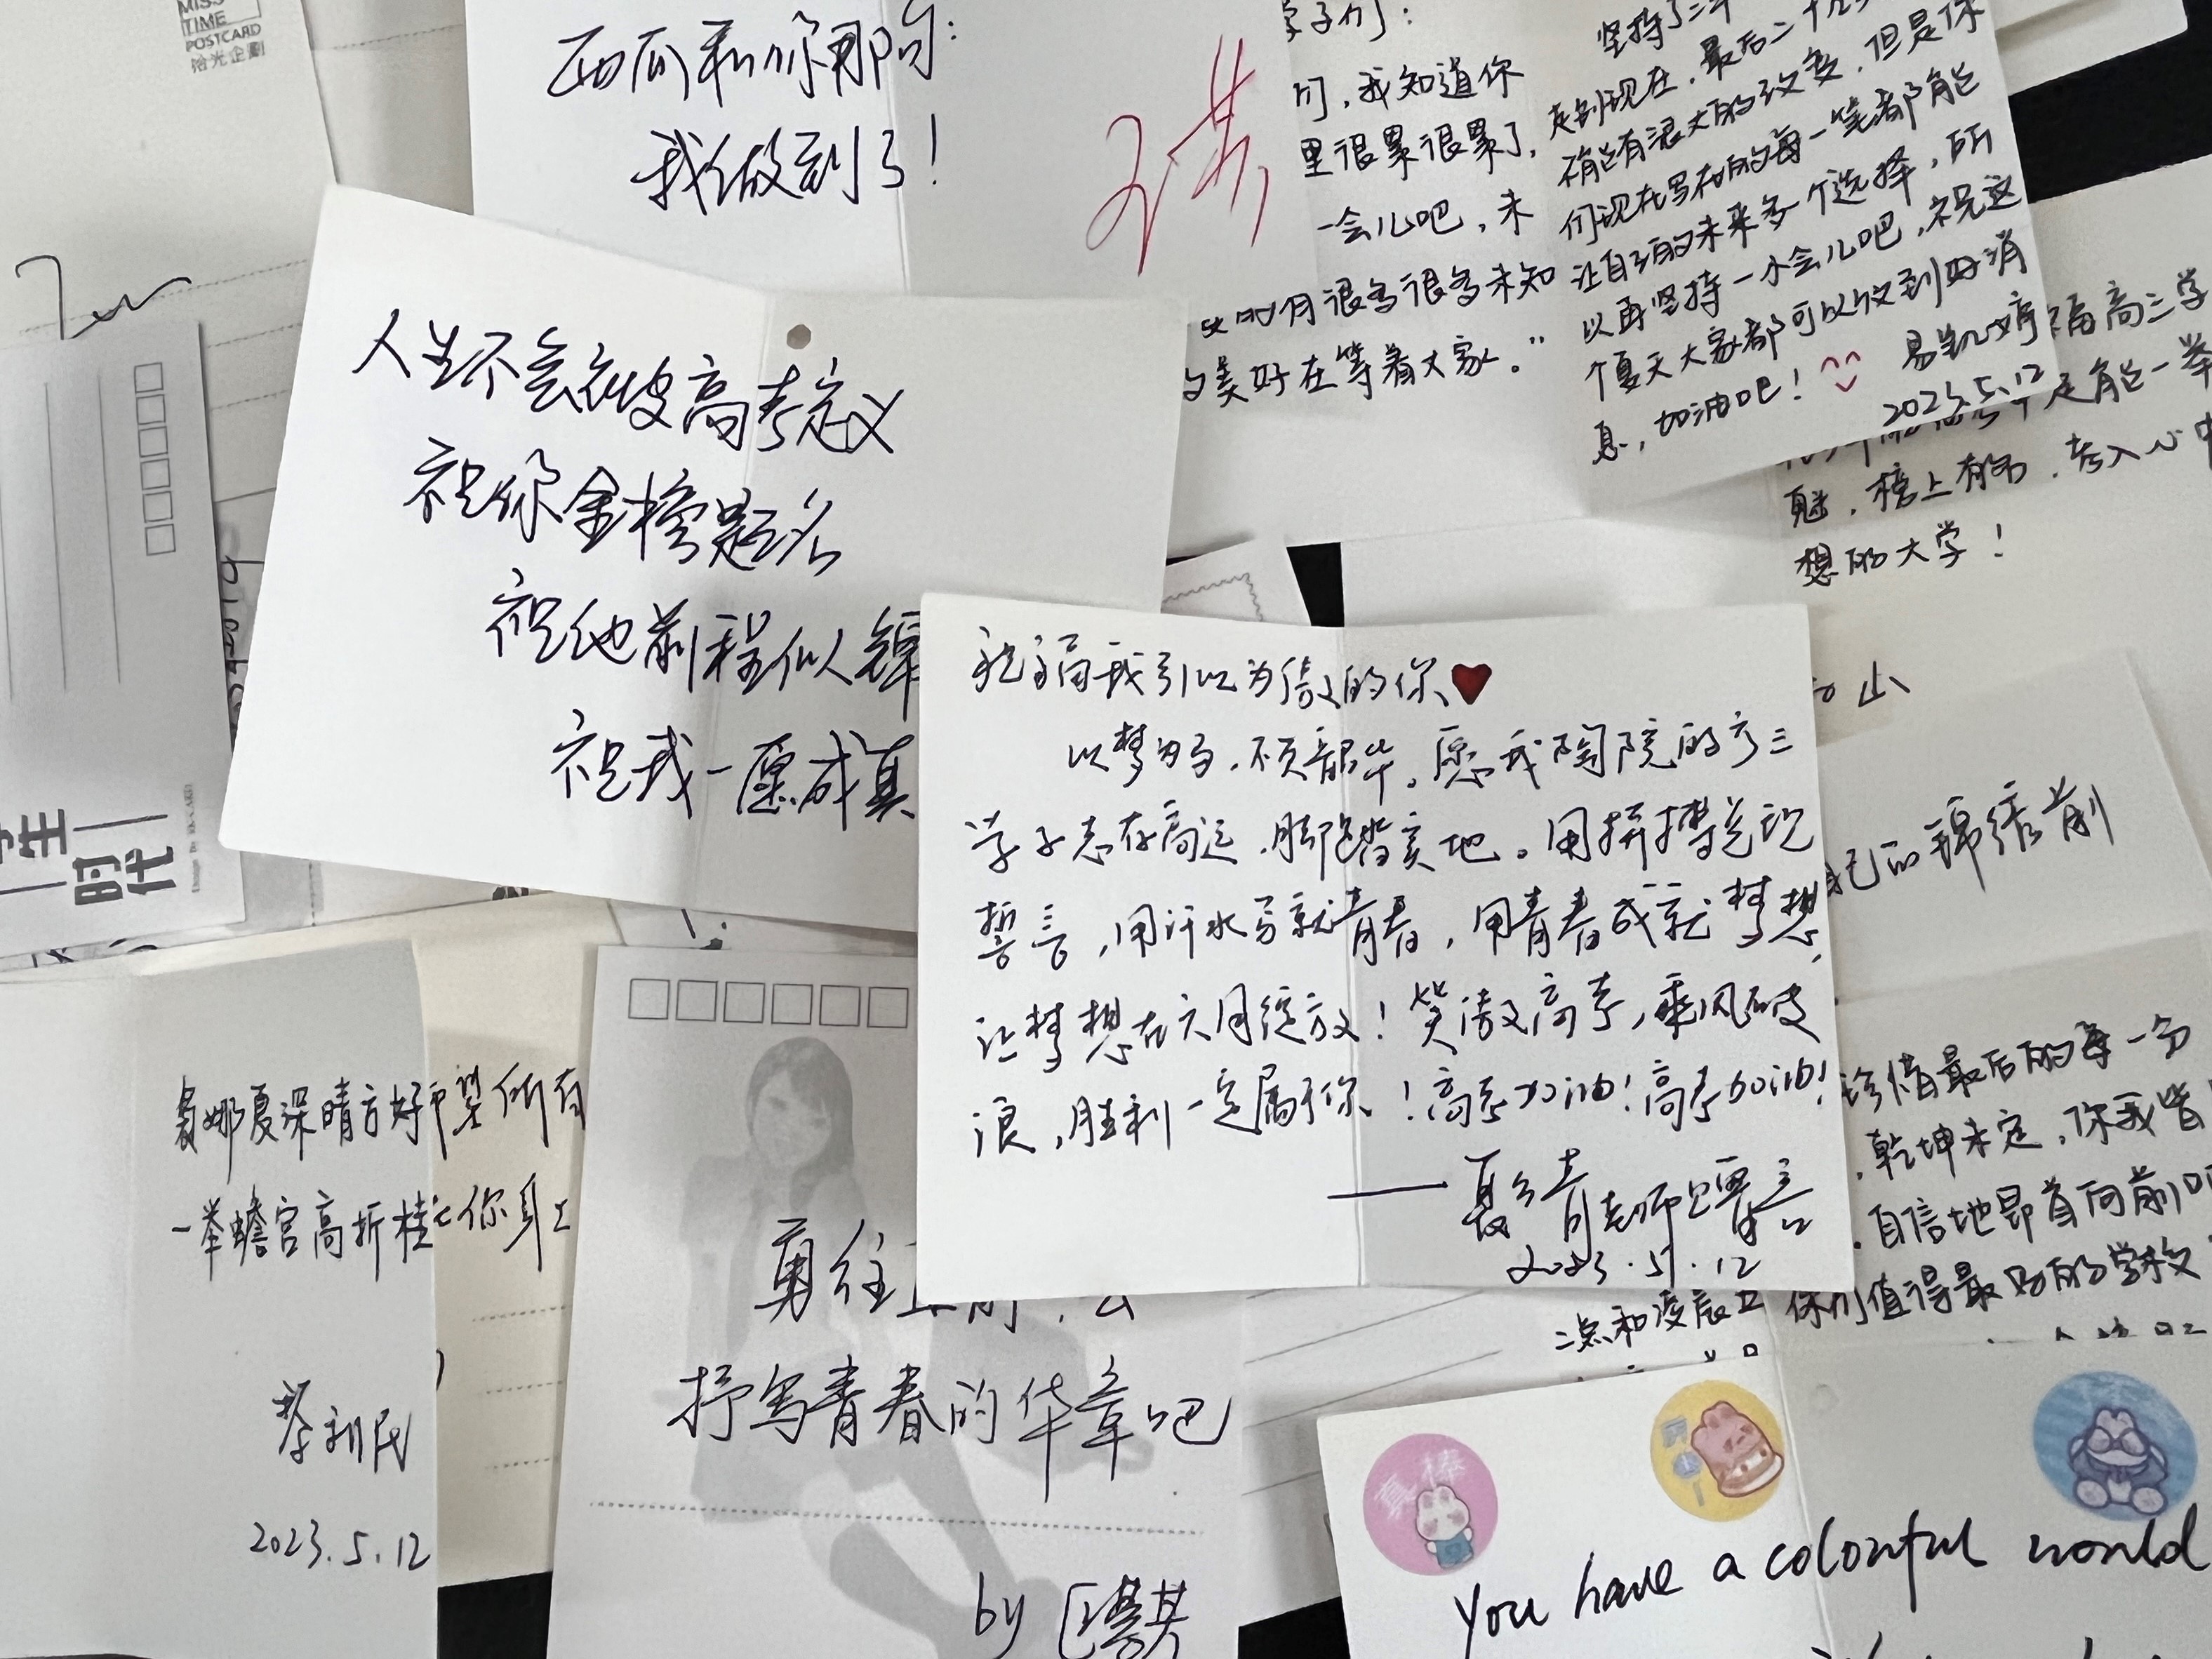 MISS
TIME
POSTCARD
拾光企劃
西瓜和你那句:
我做到了!
子琪
学子们:
们,我知道你
里很累很累了,
一会儿吧,未
有很多很多未知
的美好在等着大家。”
坚持了三年
走到现在,最后二十几天
不能有很大的改变,但是你
们现在写在的每一笔都能
让自己的未来多一个选择,所
以再坚持一小会儿吧,祝这
个夏天大家都可以收到好消
息,加油吧!
2023.5.12
高三学
能一举
魁,榜上有名,考入心中
想的大学!
人生不会被高考定义
祝你金榜题名
祝他前程似锦
祝我一愿成真
学生
时代
祝福我引以为傲的你
以梦为马,不负韶华。愿我陶院的高三
学子志存高远,脚踏实地。用拼搏兑现
誓言,用汗水写就青春,用青春成就梦想,
让梦想在六月绽放!笑傲高考,乘风破
浪,胜利一定属于你!高考加油!高考加油!
老师赠言
2023.5.12
的锦绣前
珍惜最后的每一分
,乾坤未定,你我皆
,自信地昂首向前吧
你们值得最好的学校
二点和凌晨五
夏深晴方好 希望所有
一举蟾宫高折桂 你身上
蔡利民
2023.5.12
勇往直前,去
抒写青春的华章吧
by
真棒
You have a colorful world